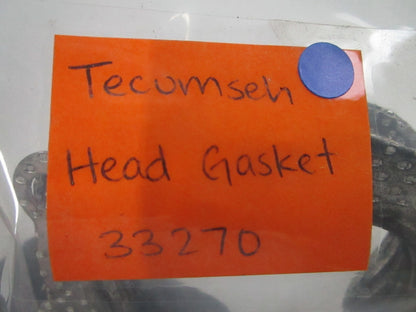 Tecumseh
Head Gasket
33270